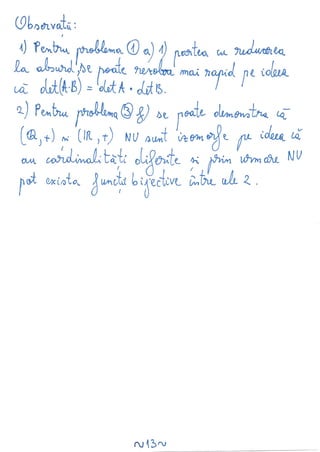 Observații:
1) Pentru problema ① a) 1) partea cu reducerea
la absurd, se poate rezolva mai rapid pe ideea
că det(A·B) = det A · det B.
2) Pentru problema ③ f) se poate demonstra că
(ℚ,+) și (ℝ,+) NU sunt izomorfe pe ideea că
au cardinalități diferite și prin urmare NU
pot exista funcții bijective între cele 2.
~13~